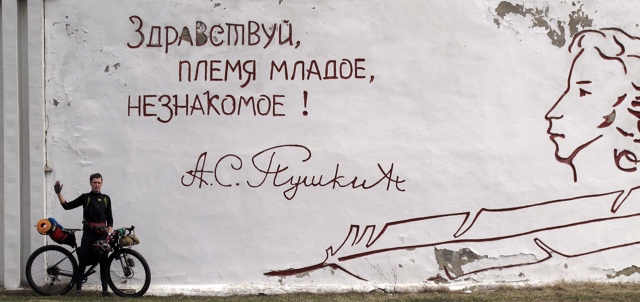 Здравствуй,
племя младое,
незнакомое !
А.С. Пушкин